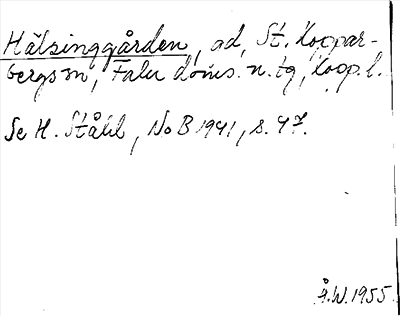 Hälsinggården, ad, St. Koppar-
bergs sn, Falu doms. n. tg, Kopp. l.
Se H. Ståhl, NoB 1941, s. 47.
Å.W. 1955.